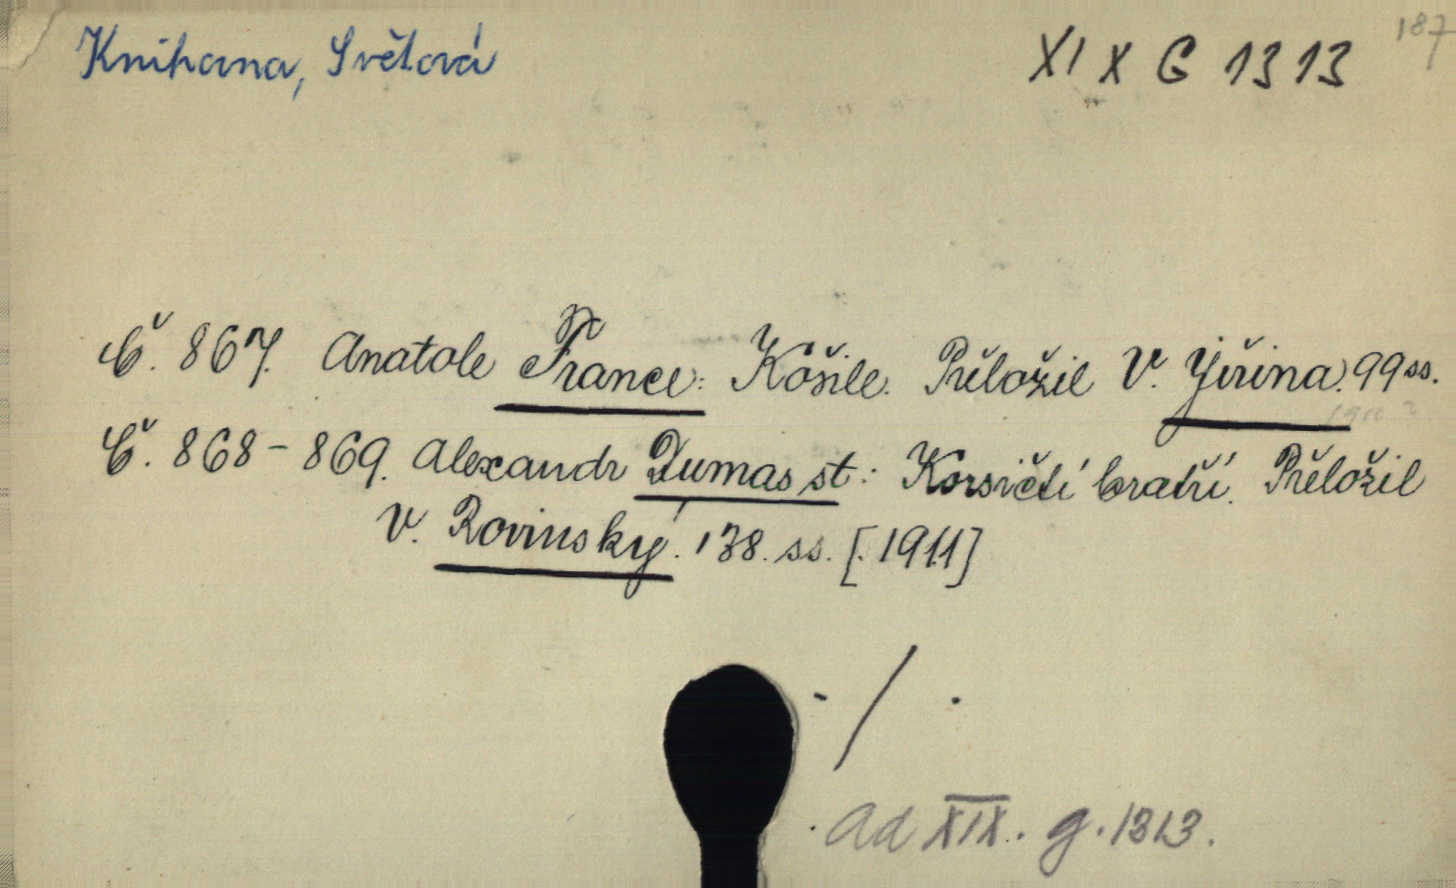 187
Knihovna, Světová XIX G 1313
Č. 867. Anatole France: Košile. Přeložil V. Jiřina. 99 ss.
Č. 868-869. Alexandr Dumas st.: Korsičtí bratří. Přeložil
V. Rovinský. 138. ss. [1911]
./.
ad XIX. g. 1313.